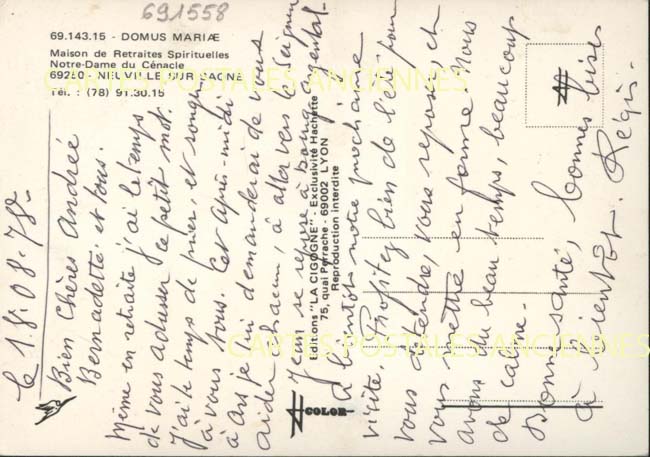 691558
69.143.15 - DOMUS MARIÆ
Maison de Retraites Spirituelles
Notre-Dame du Cénacle
69250 - NEUVILLE SUR SAONE
Tél. : (78) 91.30.15
CARTES POSTALES ANCIENNES
le 18.08.78-
Bien Chères Andrée
Bernadette et tous.
Même en retraite j'ai le temps
de vous adresser ce petit mot.
J'ai le temps de prier, et songer
à vous tous. Cet après-midi
à Ars je lui demanderai de vous
aider chacun, à aller vers le Seigneur
Jean se repose à Bourg Argental-
à bientôt notre prochaine
visite. Profitez bien de l'été pour
vous détendre, vous reposer, et
vous remettre en forme. Nous
avons du beau temps, beaucoup
de calme.
Bonne santé, bonnes bises
à bientôt. Régis-
Editions "LA CIGOGNE" - Exclusivité Hachette
75, quai Perrache - 69002 LYON
Reproduction interdite
COLOR
CARTES POSTALES ANCIENNES